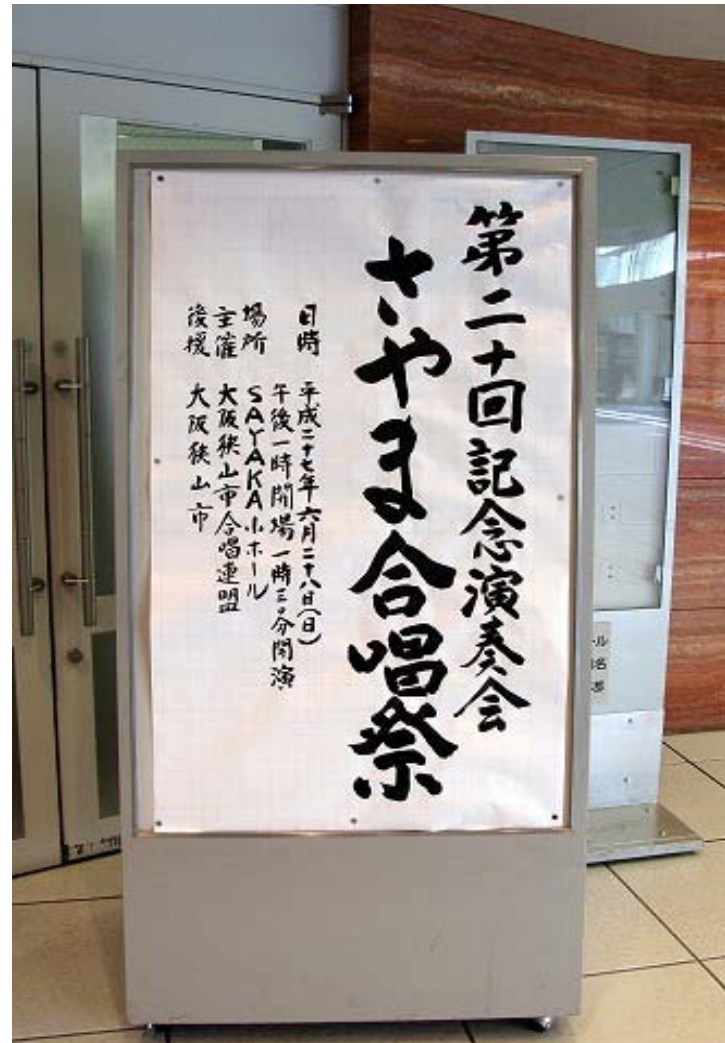 第二十回記念演奏会
さやま合唱祭
日時 平成二十七年六月二十八日(日)
午後一時開場 一時三〇分開演
場所 SAYAKA小ホール
主催 大阪狭山市合唱連盟
後援 大阪狭山市